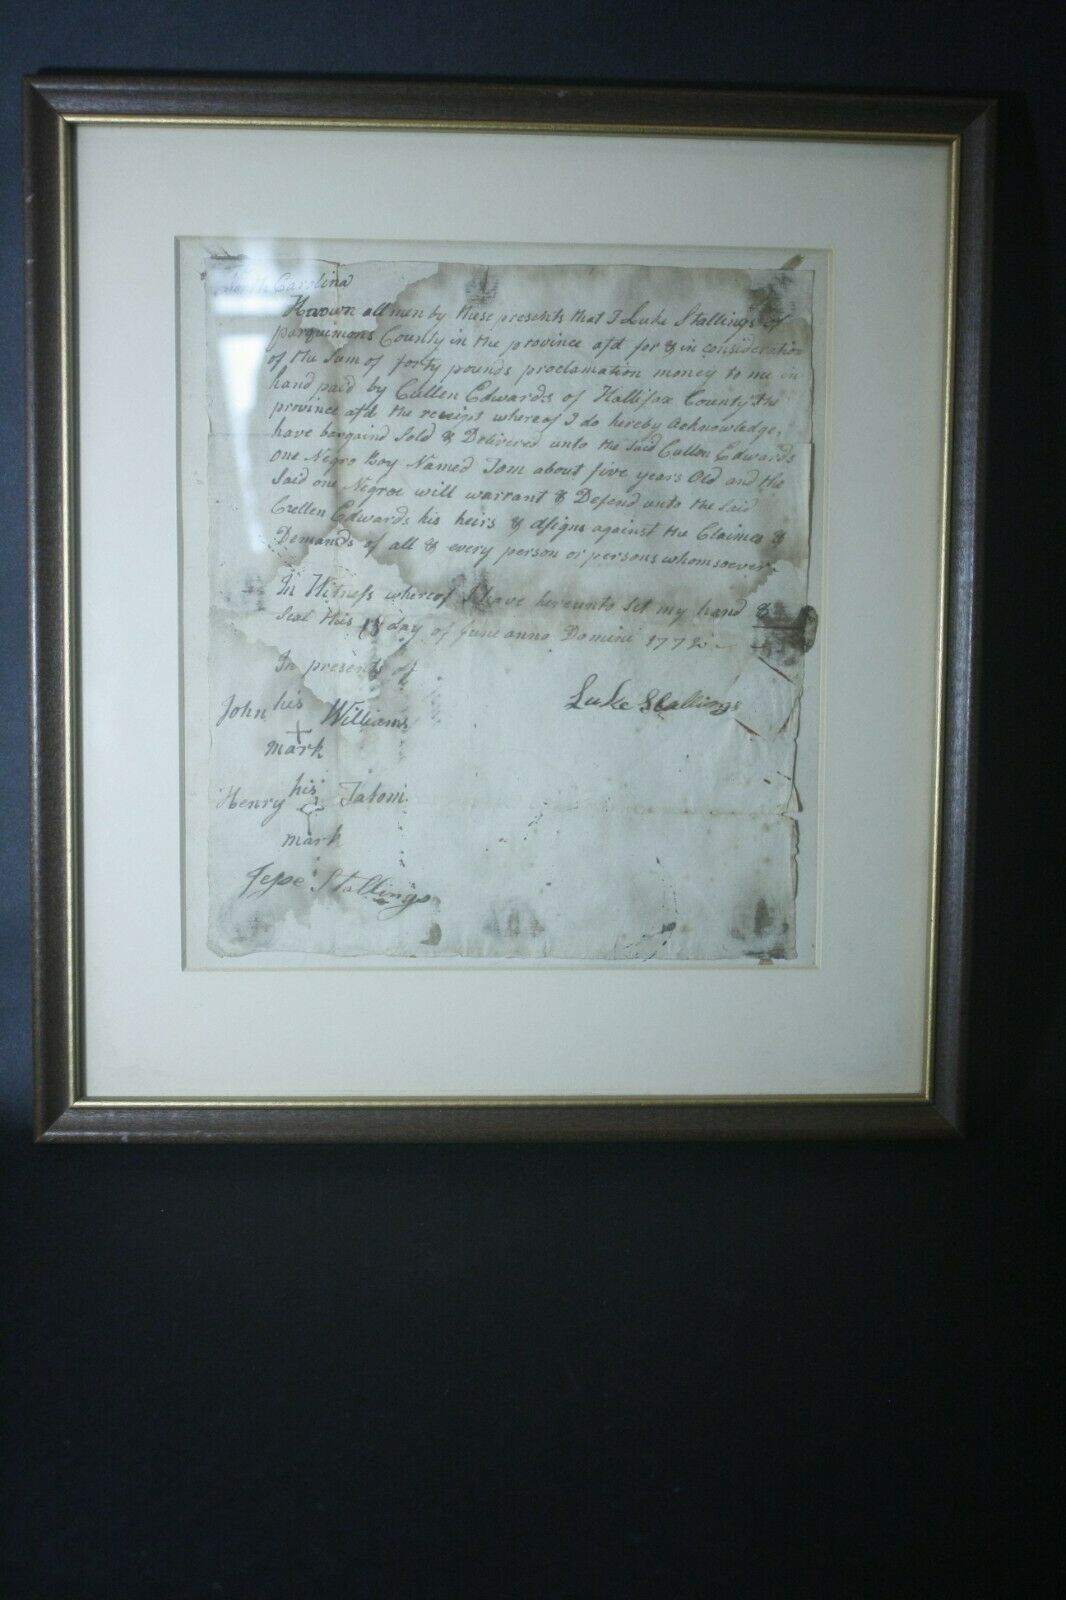 North Carolina
Known all men by these presents that I Luke Stallings of
parquimons County in the province afd for & in consideration
of the Sum of forty pounds proclamation money to me in
hand paid by Cullen Edwards of Hallifax County the
province afd the receipt whereof I do hereby Acknowledge,
have bargaind Sold & Delivered unto the Said Cullen Edwards
one Negro Boy Named Tom about five years Old and the
Said one Negroe will warrant & Defend unto the Said
Cullen Edwards his heirs & assigns against the Claimes &
Demands of all & every person or persons whomsoever
In Witness whereof I have hereunto Set my hand &
Seal this day of June anno Domini
In presents of
Luke Stallings
John his Williams
mark
Henry his Tatom
mark
Jesse Stallings